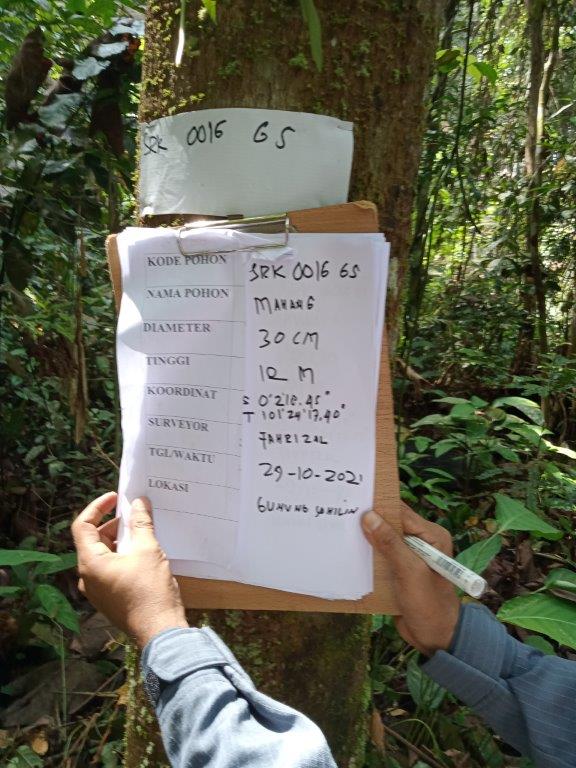 SRK 0016 GS
KODE POHON SRK 0016 GS
NAMA POHON MAHANG
DIAMETER 30 CM
TINGGI 12 M
KOORDINAT S 0°2'8.45"
T 101°24'17.40"
SURVEYOR FAHRIZAL
TGL/WAKTU 29-10-2021
LOKASI GUNUNG SAHILIN